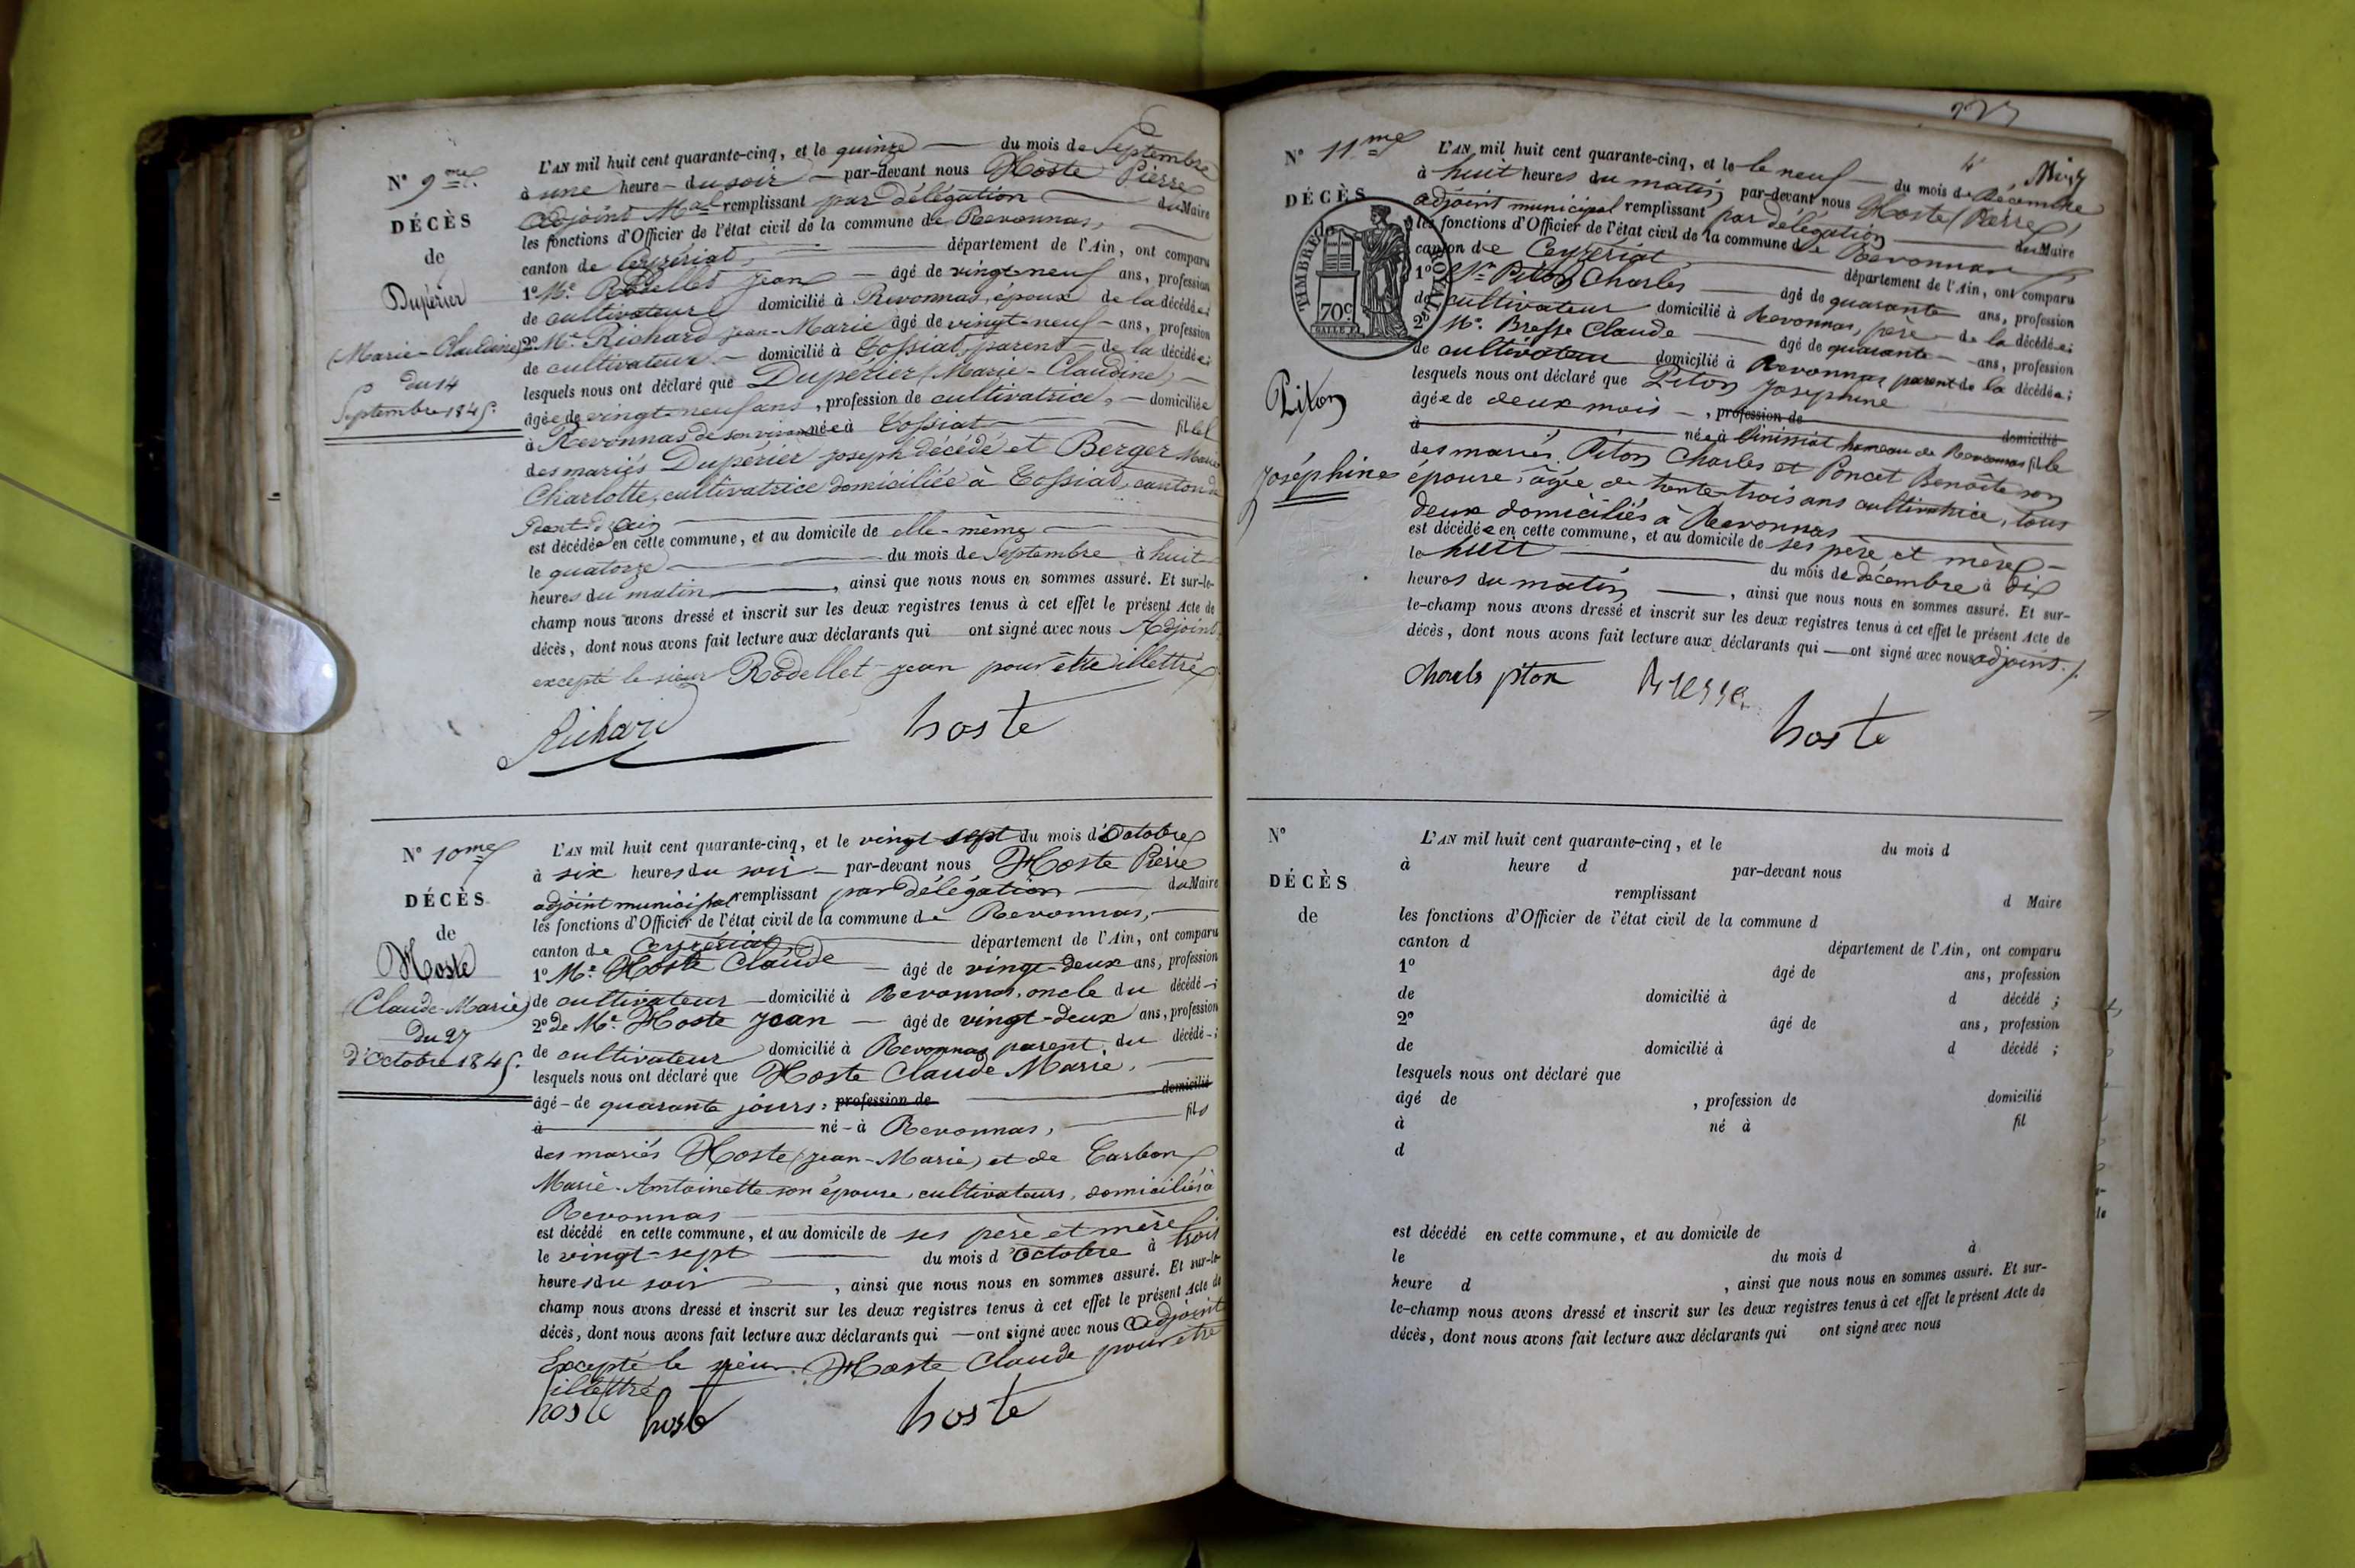 N° 9me
DÉCÈS
de
Dupérier
(Marie-Claudine)
du 14
Septembre 1845.
L'AN mil huit cent quarante-cinq, et le quinze du mois de Septembre
à une heure du soir par-devant nous Hoste Pierre
adjoint Mal remplissant par délégation du Maire
les fonctions d'Officier de l'état civil de la commune de Revonnas,
canton de Ceyzériat, département de l'Ain, ont comparu
1° Mr. Rodellet Jean âgé de vingt-neuf ans, profession
de cultivateur domicilié à Revonnas, époux de la décédée;
2° Mr. Richard Jean-Marie âgé de vingt-neuf ans, profession
de cultivateur domicilié à Tossiat, parent de la décédée;
lesquels nous ont déclaré que Dupérier (Marie-Claudine)
âgée de vingt-neuf ans, profession de cultivatrice, domiciliée
à Revonnas de son vivant née à Tossiat fille
des mariés Dupérier joseph décédé et Berger Marie
Charlotte, cultivatrice domiciliée à Tossiat, canton de
Pont-d'Ain
est décédée en cette commune, et au domicile de elle-même
le quatorze du mois de Septembre à huit
heures du matin, ainsi que nous nous en sommes assuré. Et sur-le-
champ nous avons dressé et inscrit sur les deux registres tenus à cet effet le présent Acte de
décès, dont nous avons fait lecture aux déclarants qui ont signé avec nous Adjoint
excepté le sieur Rodellet Jean pour être illettré
Richard hoste
N° 10me
DÉCÈS
de
Hoste
(Claude-Marie)
du 27
d'Octobre 1845.
L'AN mil huit cent quarante-cinq, et le vingt sept du mois d'Octobre
à six heures du soir par-devant nous Hoste Pierre
adjoint municipal remplissant par délégation du Maire
les fonctions d'Officier de l'état civil de la commune de Revonnas,
canton de Ceyzériat, département de l'Ain, ont comparu
1° Mr. Hoste Claude âgé de vingt-deux ans, profession
de cultivateur domicilié à Revonnas, oncle du décédé;
2° de Mr. Hoste Jean âgé de vingt-deux ans, profession
de cultivateur domicilié à Revonnas parent du décédé;
lesquels nous ont déclaré que Hoste Claude Marie,
âgé de quarante jours, profession de domicilié
à né à Revonnas, fils
des mariés Hoste (Jean-Marie) et de Carbon
Marie-Antoinette son épouse, cultivateurs, domiciliés à
Revonnas
est décédé en cette commune, et au domicile de ses père et mère
le vingt-sept du mois d'Octobre à trois
heures du soir, ainsi que nous nous en sommes assuré. Et sur-le-
champ nous avons dressé et inscrit sur les deux registres tenus à cet effet le présent Acte de
décès, dont nous avons fait lecture aux déclarants qui ont signé avec nous adjoint
Excepté le sieur Hoste Claude pour être
illettré
hoste hoste hoste
N° 11me
DÉCÈS
TIMBRE ROYAL
70c
Piton
Joséphine
L'AN mil huit cent quarante-cinq, et le le neuf du mois de Décembre
à huit heures du matin par-devant nous Hoste (Pierre)
adjoint municipal remplissant par délégation du Maire
les fonctions d'Officier de l'état civil de la commune de Revonnas
canton de Ceyzériat département de l'Ain, ont comparu
1° Mr. Piton Charles âgé de quarante ans, profession
de cultivateur domicilié à Revonnas, père de la décédée;
2° Mr. Bresse Claude âgé de quarante ans, profession
de cultivateur domicilié à Revonnas parent de la décédée;
lesquels nous ont déclaré que Piton Joséphine
âgée de deux mois, profession de domicilié
à née à hameau de Revonnas fille
des mariés Piton Charles et Poncet Benoîte son
épouse, âgée de trente-trois ans cultivatrice, tous
deux domiciliés à Revonnas
est décédée en cette commune, et au domicile de ses père et mère
le huit du mois de décembre à dix
heures du matin, ainsi que nous nous en sommes assuré. Et sur-
le-champ nous avons dressé et inscrit sur les deux registres tenus à cet effet le présent Acte de
décès, dont nous avons fait lecture aux déclarants qui ont signé avec nous adjoint.
Charls piton Bresse
hoste
N°
DÉCÈS
de
L'AN mil huit cent quarante-cinq, et le du mois d
à heure d par-devant nous
remplissant d Maire
les fonctions d'Officier de l'état civil de la commune d
canton d département de l'Ain, ont comparu
1° âgé de ans, profession
de domicilié à d décédé;
2° âgé de ans, profession
de domicilié à d décédé;
lesquels nous ont déclaré que
âgé de, profession de domicilié
à né à fil
d
est décédé en cette commune, et au domicile de
le du mois d à
heure d, ainsi que nous nous en sommes assuré. Et sur-
le-champ nous avons dressé et inscrit sur les deux registres tenus à cet effet le présent Acte de
décès, dont nous avons fait lecture aux déclarants qui ont signé avec nous